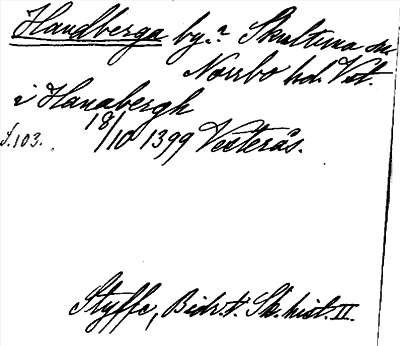 Handberga by.? Skultuna sn.
Norrbo hd. Vstl.
i Hanabergh
s.103. 18/10 1399 Vesterås.
Styffe, Bidr. t. Sk. hist. II.